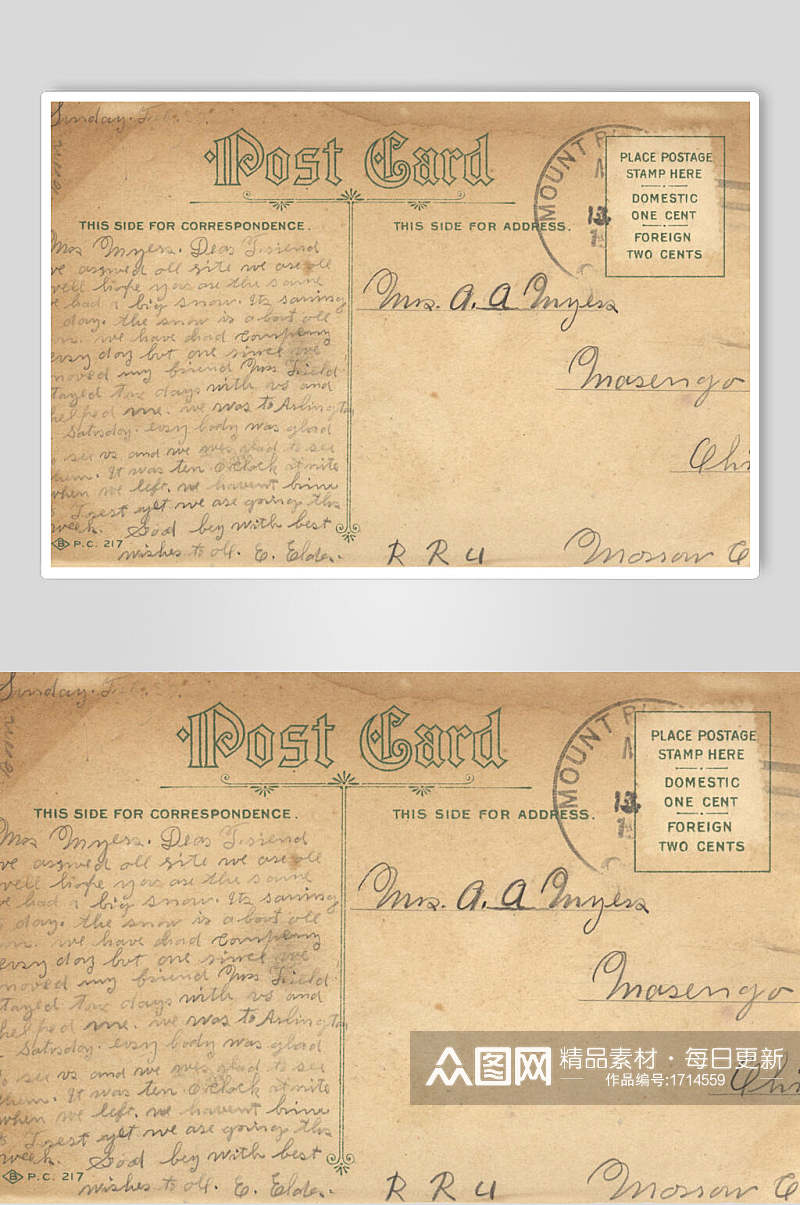 Sunday.
Post Card
MOUNT
13
PLACE POSTAGE
STAMP HERE
DOMESTIC
ONE CENT
FOREIGN
TWO CENTS
THIS SIDE FOR CORRESPONDENCE.
THIS SIDE FOR ADDRESS.
Mrs Myers. Dear Friend
we all rite we are all
well hope you are the same
we had a big snow. Its raining
day. the snow is about all
we have had company
every day but one since we
moved my friend Mrs Field
stayed two days with us and
helped me. we was to Arlington
Saturday. every body was glad
to see us and we was glad to see
them. It was ten O'Clock at nite
when we left. we havent
yet we are going this
week. God bey with best
wishes to all. E. Elder.
B P.C. 217
Mrs. A. A Myers
Masengo
Ohi
R R 4
Morrow O
Sunday.
Post Card
MOUNT
13
PLACE POSTAGE
STAMP HERE
DOMESTIC
ONE CENT
FOREIGN
TWO CENTS
THIS SIDE FOR CORRESPONDENCE.
THIS SIDE FOR ADDRESS.
Mrs Myers. Dear Friend
we all rite we are all
well hope you are the same
we had a big snow. Its raining
day. the snow is about all
we have had company
every day but one since we
moved my friend Mrs Field
stayed two days with us and
helped me. we was to Arlington
Saturday. every body was glad
to see us and we was glad to see
them. It was ten O'Clock at nite
when we left. we havent
yet we are going this
week. God bey with best
wishes to all. E. Elder.
B P.C. 217
Mrs. A. A Myers
Masengo
Ohi
R R 4
Morrow O
众图网
精品素材·每日更新
作品编号:1714559